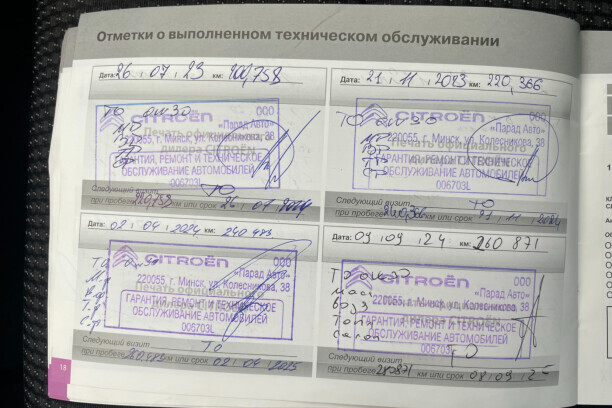 Отметки о выполненном техническом обслуживании
Дата: 26 . 07 . 23 км: 200,758
ТО ом30
CITROËN ООО
«Парад Авто»
Печать официального
220055, г. Минск, ул. Колесникова, 38
дилера CITROËN
ГАРАНТИЯ, РЕМОНТ И ТЕХНИЧЕСКОЕ
ОБСЛУЖИВАНИЕ АВТОМОБИЛЕЙ
006703L
Следующий визит ТО
при пробеге: 220,758 км или срок 26 . 07 . 2024
Дата: 21 . 11 . 2023 км: 220,366
ТО ом30
CITROËN ООО
«Парад Авто»
Печать официального
220055, г. Минск, ул. Колесникова, 38
ГАРАНТИЯ, РЕМОНТ И ТЕХНИЧЕСКОЕ
ОБСЛУЖИВАНИЕ АВТОМОБИЛЕЙ
006703L
Следующий визит ТО
при пробеге: 240,366 км или срок 21 . 11 . 2024
Дата: 08 . 04 . 2024 км: 240 483
CITROËN ООО
«Парад Авто»
220055, г. Минск, ул. Колесникова, 38
Печать официального
ГАРАНТИЯ, РЕМОНТ И ТЕХНИЧЕСКОЕ
ОБСЛУЖИВАНИЕ АВТОМОБИЛЕЙ
006703L
Следующий визит ТО
при пробеге: 260,483 км или срок 08 . 04 . 2025
Дата: 09 . 09 . 24 км: 260 871
ТО ом30
CITROËN ООО
«Парад Авто»
220055, г. Минск, ул. Колесникова, 38
ГАРАНТИЯ, РЕМОНТ И ТЕХНИЧЕСКОЕ
ОБСЛУЖИВАНИЕ АВТОМОБИЛЕЙ
006703L
Следующий визит ТО
при пробеге: 280871 км или срок 08 . 09 . 25
18